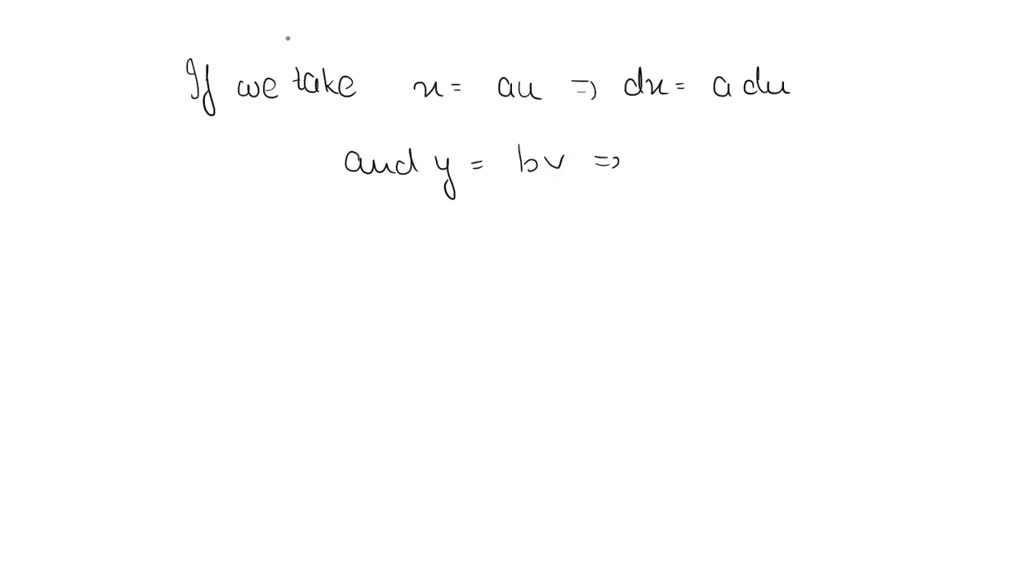 If we take x = au => dx = a du
and y = bv =>